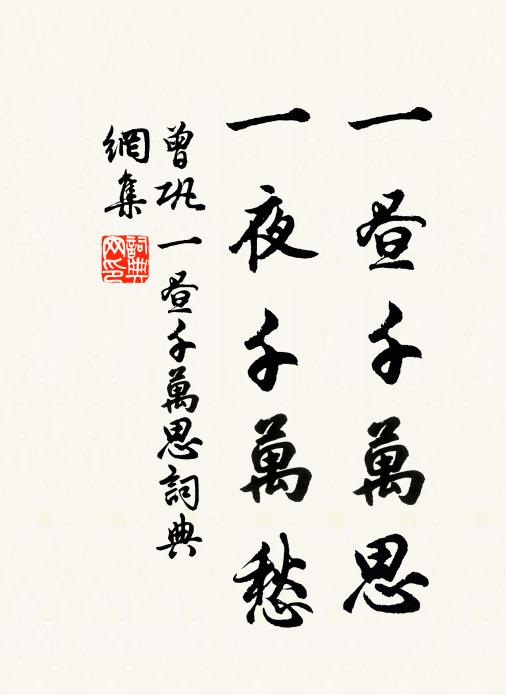 一晝千萬思
一夜千萬愁
曾巩一晝千萬思詞典
網集
詞典
网印